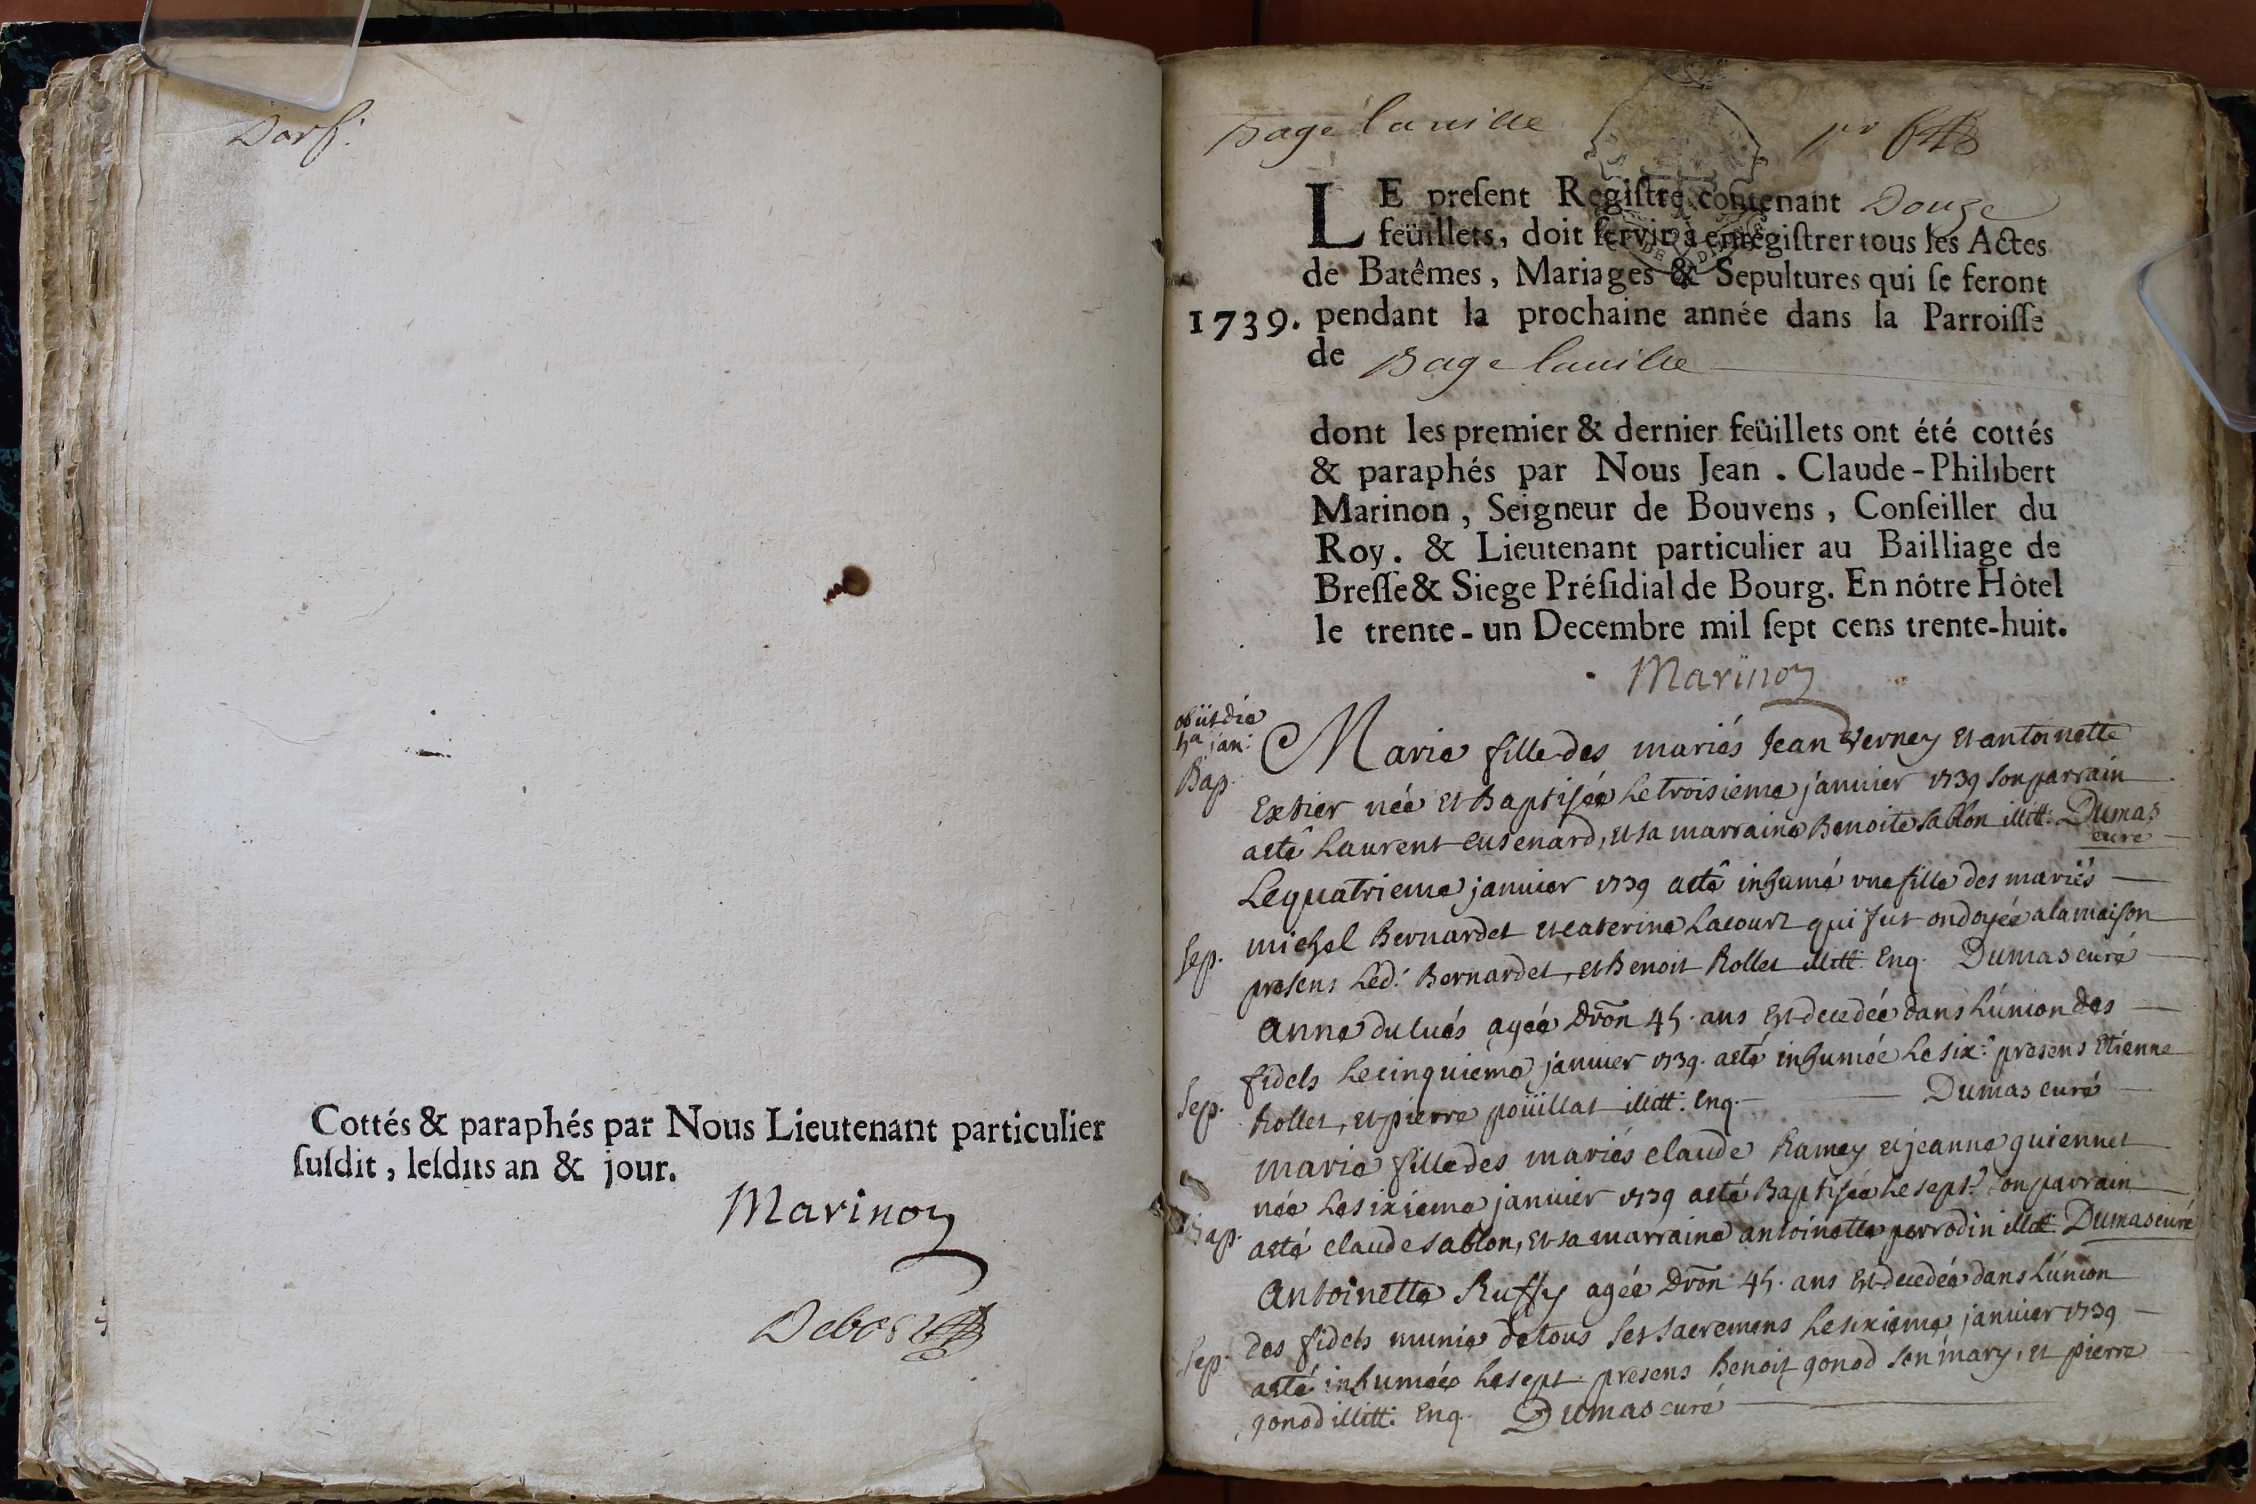 Cottés & paraphés par Nous Lieutenant particulier
ſuſdit, leſdits an & jour.
Marinon
Bage la ville
LE preſent Regiſtre contenant Douze
feüillets, doit ſervir à enregiſtrer tous les Actes
de Batêmes, Mariages & Sepultures qui ſe feront
1739. pendant la prochaine année dans la Parroiſſe
de Bage la ville
dont les premier & dernier feüillets ont été cottés
& paraphés par Nous Jean. Claude-Philibert
Marinon, Seigneur de Bouvens, Conſeiller du
Roy. & Lieutenant particulier au Bailliage de
Breſſe & Siege Préſidial de Bourg. En nôtre Hôtel
le trente-un Decembre mil ſept cens trente-huit.
Marinon
obiit die
4a jan:
Bap.
Marie fille des mariés Jean Verney et antoinette
Extier née et Baptisée le troisieme janvier 1739 son parrain
a eté Laurent Cusenard, et sa marraine Benoite sablon illitt: Dumas
curé
Le quatrieme janvier 1739 a eté inhumé une fille des mariés
Sep. michel Bernardet et caterine Lacour qui fut ondoyée a la maison
presens led. Bernardet, et Benoit Rollet illitt: Enq. Dumas curé
anne du lués agée dron 45. ans est decedée dans l'union des
fidels le cinquieme janvier 1739. a eté inhumée le six: presens Etienne
Sep. Rollet, et pierre poüillat illitt: Enq. Dumas curé
marie fille des mariés claude Ramey et jeanne guiennet
née le sixieme janvier 1739 a eté Baptisée le sept: son parrain
Bap. a eté claude sablon, et sa marraine antoinette perrodin illitt: Dumas curé
Antoinette Ruffy agée dron 45. ans est decedée dans l'union
des fidels munie de tous ses sacremens le sixieme janvier 1739
Sep. a eté inhumée le sept presens benoit gonod son mary, et pierre
gonod illitt: Enq. Dumas curé